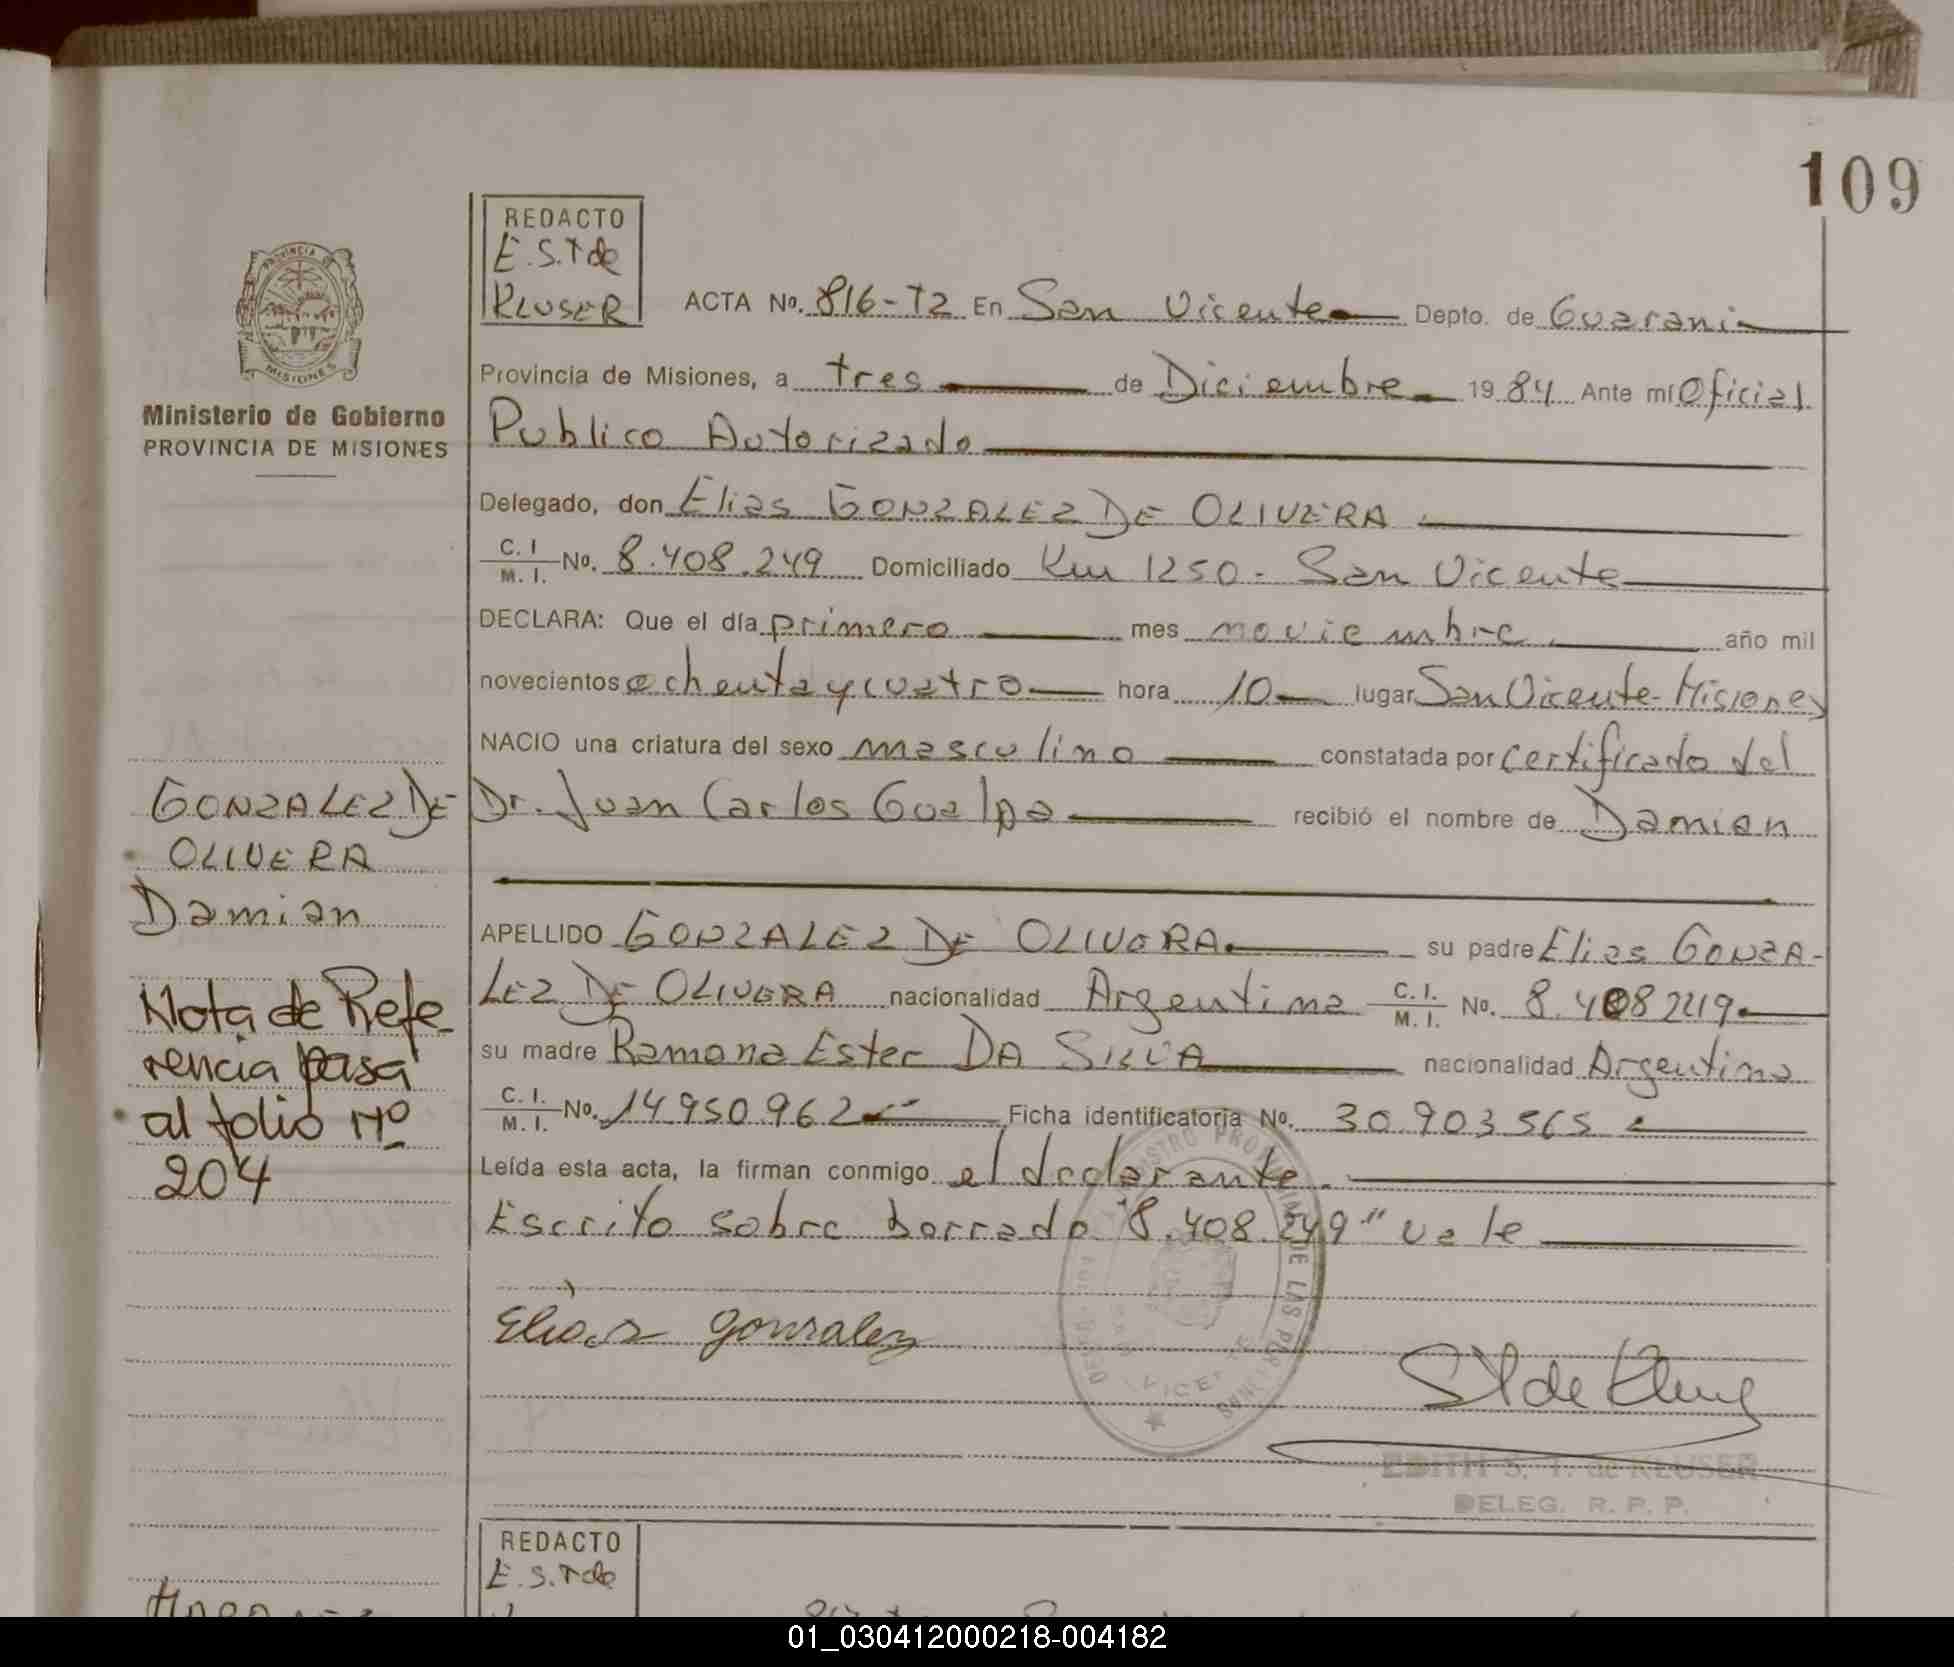 109
REDACTO
E.S.T de
KLUSER
PROVINCIA DE
MISIONES
Ministerio de Gobierno
PROVINCIA DE MISIONES
ACTA No. 816-T2 En San Vicente Depto. de Guarani
Provincia de Misiones, a tres de Diciembre 1984 Ante mí Oficial
Publico Autorizado
Delegado, don Elias GONZALEZ DE OLIVERA
C. I. M. I. No. 8.408.249 Domiciliado Km 1250 - San Vicente
DECLARA: Que el día primero mes noviembre año mil
novecientos ochenta y cuatro hora 10 lugar San Vicente-Misiones
NACIO una criatura del sexo masculino constatada por certificado del
Dr. Juan Carlos Gualpa recibió el nombre de Damian
APELLIDO GONZALEZ DE OLIVERA su padre Elias GONZA-
LEZ DE OLIVERA nacionalidad Argentina C. I. M. I. No. 8.408249
su madre Ramona Ester DA SILVA nacionalidad Argentina
C. I. M. I. No. 14.950.962 Ficha identificatoria No. 30.903565
Leída esta acta, la firman conmigo el declarante.
Escrito sobre borrado "8.408.249" vale
GONZALEZ DE
OLIVERA
Damian
Nota de Refe-
rencia pasa
al folio Nº
204
Elias Gonzalez
ST de Kluser
EDITH S. T. de KLUSER
DELEG. R. P. P.
REDACTO
E.S.T de
01_030412000218-004182